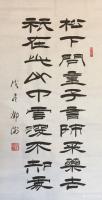 松下問童子言師采藥去
祇在此山中雲深不知處